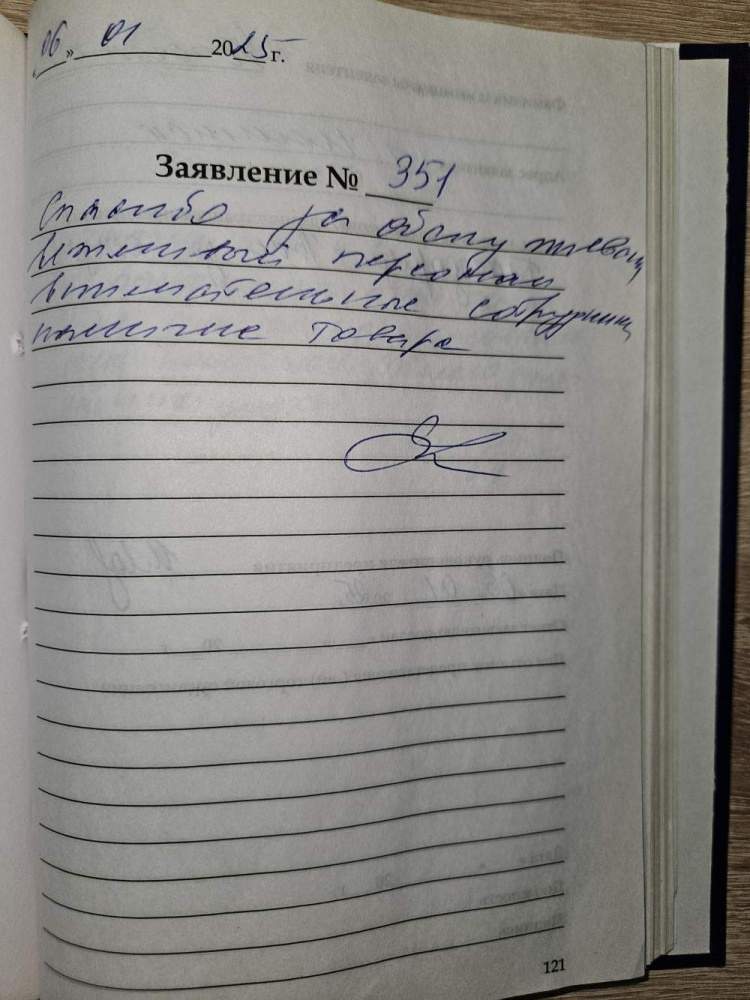 «06» 01 2025 г.
Заявление № 351
Спасибо за обслуживан
Вежливый персонал
внимательные сотрудники
наличие товара
121